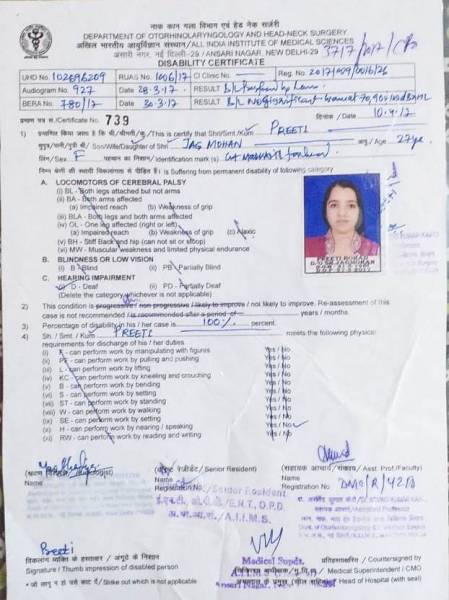 नाक कान गला विभाग एवं हेड नेक सर्जरी
DEPARTMENT OF OTORHINOLARYNGOLOGY AND HEAD-NECK SURGERY
अखिल भारतीय आयुर्विज्ञान संस्थान/ALL INDIA INSTITUTE OF MEDICAL SCIENCES
अंसारी नगर, नई दिल्ली-29 / ANSARI NAGAR, NEW DELHI-29
DISABILITY CERTIFICATE
UHID No 102696209 RUAS No. 1006/17 CI Clinic No. Reg. No. 2017/009/0016126
Audiogram No. 927 Date 28.3.17 RESULT B/L
BERA No. 780/17 Date 30.3.17 RESULT B/L NO significant
प्रमाण पत्र सं./Certificate No. 739 दिनांक / Date 10.4.17
1) प्रमाणित किया जाता है कि श्री/श्रीमती/कु./This is certify that Shri/Smt./Kum PREETI
सुपुत्र/पत्नी/पुत्री श्री/ Son/Wife/Daughter of Shri JAG MOHAN आयु / Age 27yr
लिंग/Sex F पहचान का निशान/Identification mark(s) forehead
निम्न श्रेणी की स्थायी विकलांगता से पीड़ित हैं। is Suffering from permanent disability of following category
A. LOCOMOTORS OF CEREBRAL PALSY
(i) BL - Both legs attached but not arms
(ii) BA - Both arms affected
(a) Impaired reach (b) Weakness of grip
(iii) BLA - Both legs and both arms affected
(iv) OL - One leg affected (right or left)
(a) Impaired reach (b) Weakness of grip (c) Ataxic
(v) BH - Stiff Back and hip (can not sit or stoop)
(vi) MW - Muscular weakness and limited physical endurance
B. BLINDNESS OR LOW VISION
(i) B - Blind (ii) PB - Partially Blind
C. HEARING IMPAIRMENT
(i) D - Deaf (ii) PD - Partially Deaf
(Delete the category whichever is not applicable)
PREETI ROHAN
D/O SH JAGMOHAN
2) This condition is progressive / non progressive / likely to improve / not likely to improve. Re-assessment of this
case is not recommended / is recommended after a period of years / months.
3) Percentage of disability in his / her case is 100% percent.
4) Sh. / Smt. / Kum PREETI meets the following physical
requirements for discharge of his / her duties
(i) F - can perform work by manipulating with figures Yes / No
(ii) PP - can perform work by pulling and pushing Yes / No
(iii) L - can perform work by lifting Yes / No
(iv) KC - can perform work by kneeling and crouching Yes / No
(v) B - can perform work by bending Yes / No
(vi) S - can perform work by setting Yes / No
(vii) ST - can perform work by standing Yes / No
(viii) W - can perform work by walking Yes / No
(ix) SE - can perform work by seeing Yes / No
(x) H - can perform work by hearing / speaking Yes / No
(xi) RW - can perform work by reading and writing Yes / No
(वरिष्ठ रेजीडेंट/Senior Resident) (सहायक आचार्य / संकाय / Asst. Prof./Faculty)
Name Name Name
Registration No. Registration No. DMC/R/4218
Senior Resident
ई.एन.टी., ओ.पी.डी/E.N.T., O.P.D
अ.भा.आ.सं./A.I.I.M.S.
Preeti
विकलांग व्यक्ति के हस्ताक्षर / अंगूठे के निशान
Signature / Thumb impression of disabled person
* जो लागू न हो उसे काट दें/Strike out which is not applicable
Medical Supdt.
A.I.I.M.S
Ansari Nagar, New Delhi
प्रतिहस्ताक्षरित / Countersigned by
Medical Superintendent / CMO
Head of Hospital (with seal)